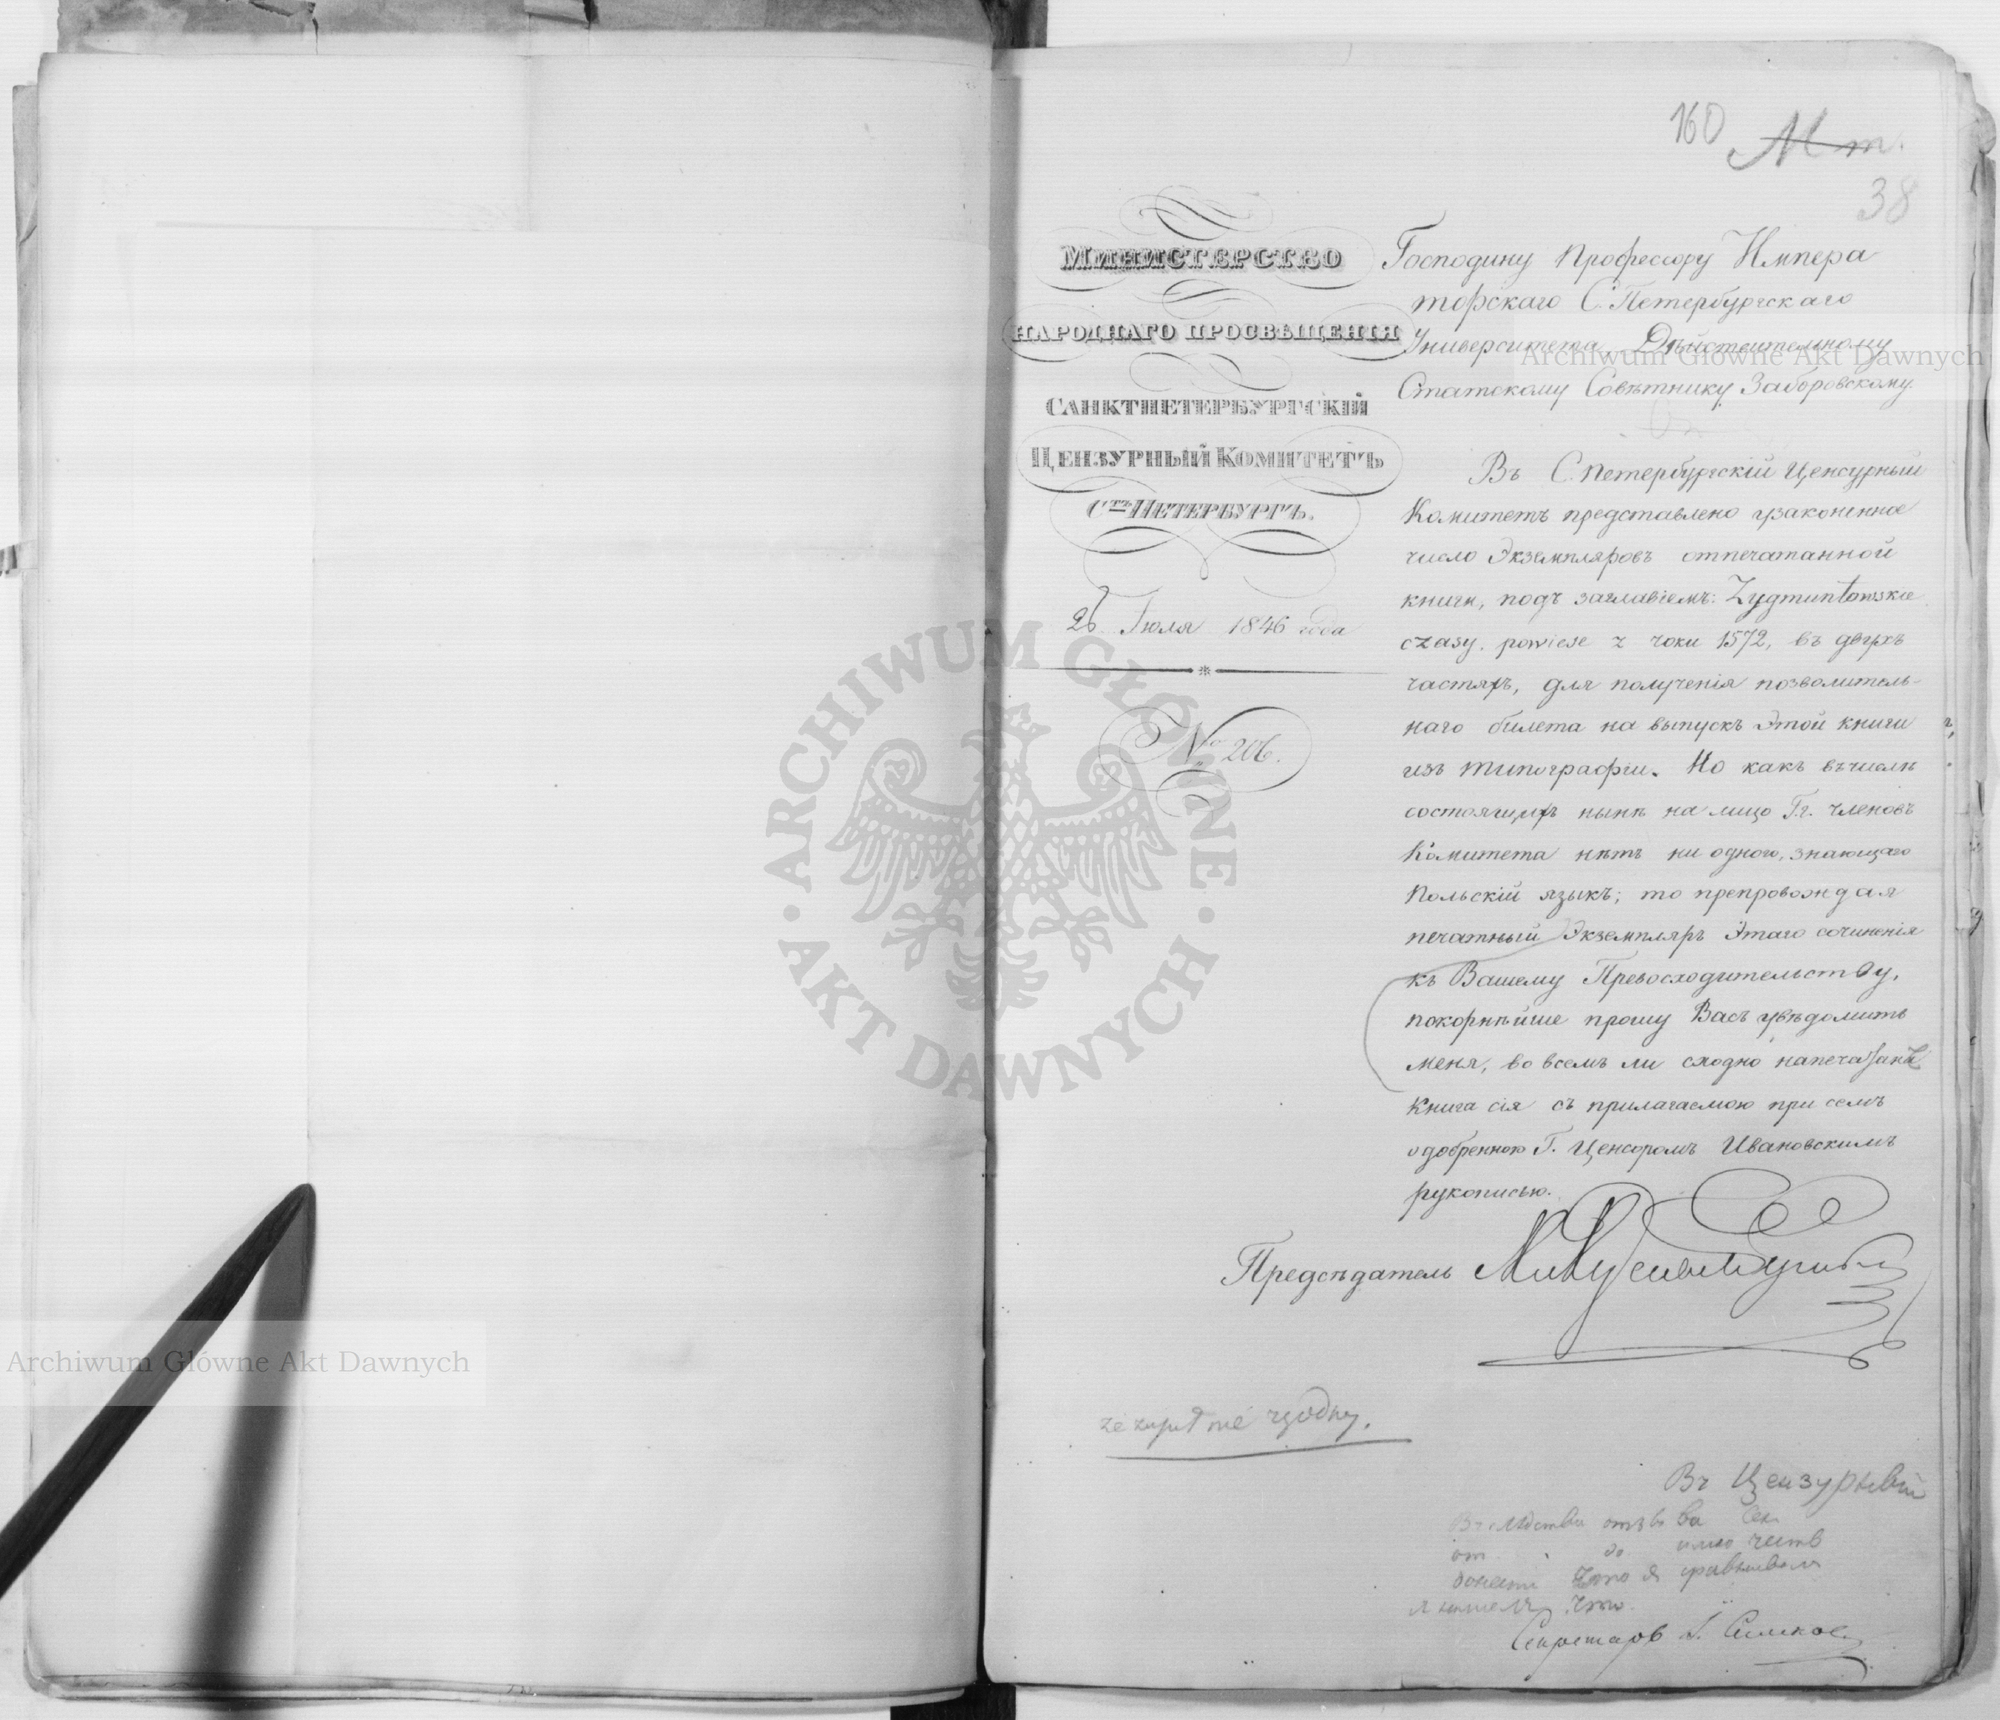 160
М т.
38
МИНИСТЕРСТВО
НАРОДНАГО ПРОСВѢЩЕНІЯ
САНКТПЕТЕРБУРГСКІЙ
ЦЕНЗУРНЫЙ КОМИТЕТЪ
СТЪ ПЕТЕРБУРГЪ.
26 Іюля 1846 года
№ 206.
Господину Профессору Импера
торскаго С. Петербургскаго
Университета Дѣйствительному
Статскому Совѣтнику Заборовскому.
Въ С. Петербургскій Ценсурный
Комитетъ представлено узаконенное
число Экземпляровъ отпечатанной
книги, подъ заглавіемъ: Zygmuntowskie
czasy. powiese z roku 1572, въ двухъ
частяхъ, для полученія позволитель-
наго билета на выпускъ этой книги
изъ типографіи. Но какъ въ числѣ
состоящихъ нынѣ на лицо Г.г. членовъ
Комитета нѣтъ ни одного, знающаго
Польскій языкъ; то препровождая
печатный Экземпляръ этаго сочиненія
къ Вашему Превосходительству,
покорнѣйше прошу Васъ увѣдомить
меня, во всемъ ли сходно напечатана
книга сія съ прилагаемою при семъ
одобренною Г. Ценсоромъ Ивановскимъ
рукописью.
Предсѣдатель
Въ Цензурный
имею честь
донести что я сравнивал
что
Секретарь
Archiwum Główne Akt Dawnych
Archiwum Główne Akt Dawnych
ARCHIWUM GŁÓWNE · AKT DAWNYCH ·